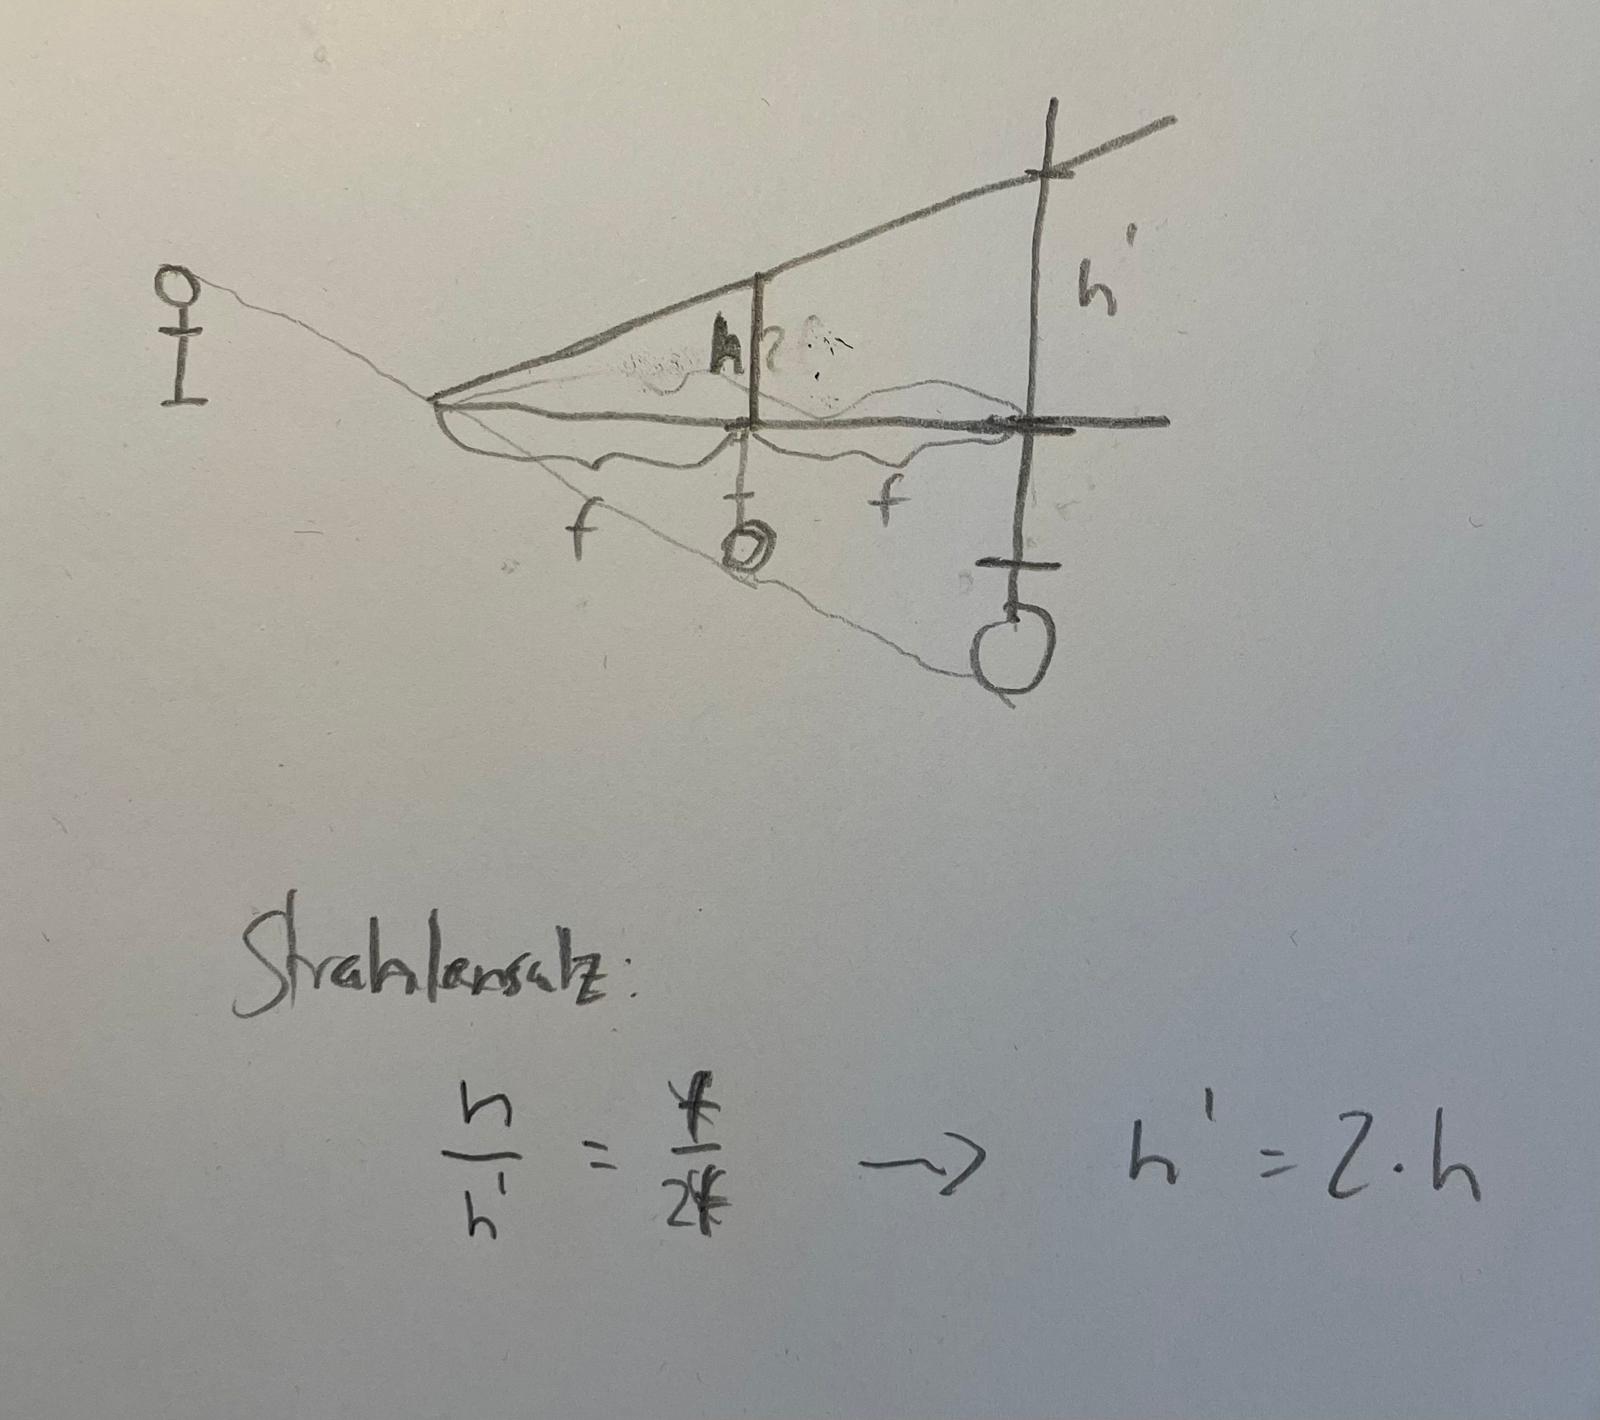 h'
h
f
f
Strahlensatz:
h/h' = f/2f → h' = 2·h